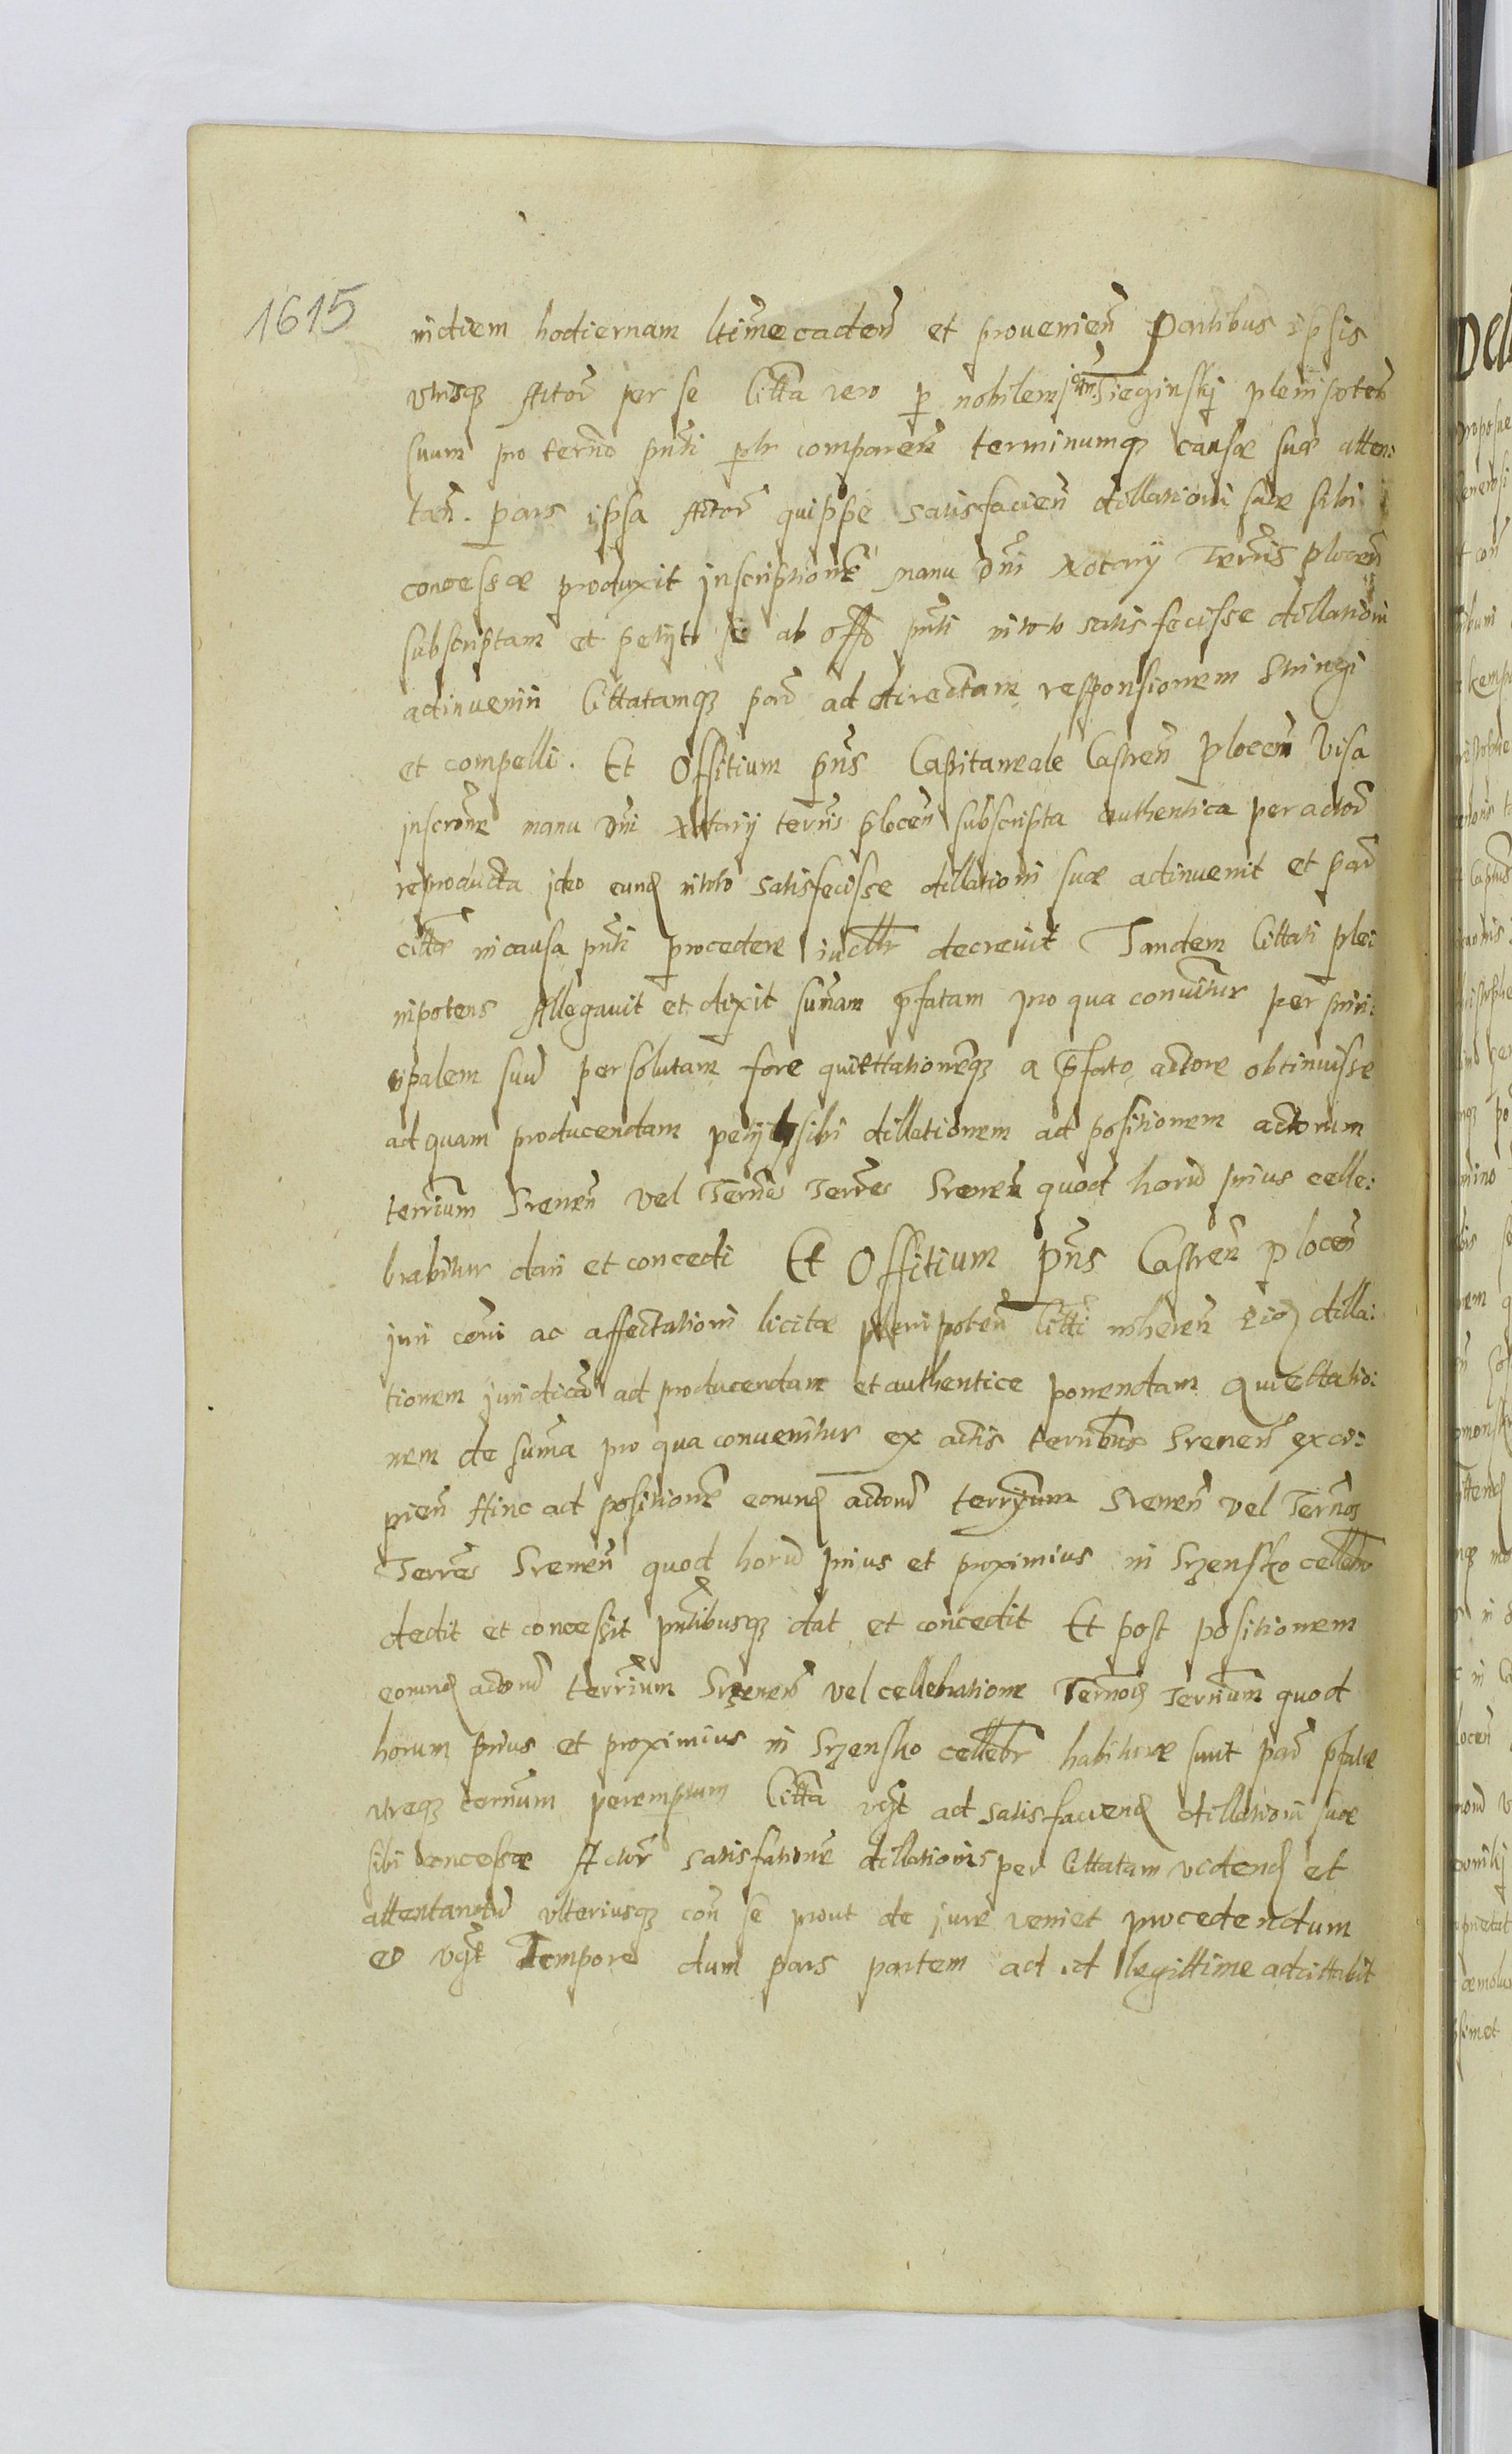 1615
in diem hodiernam ltime caden et provenien Partibus ipsis
utrisq Actor per se Citta vero p nobilem Jieginskj plenipoten
suum pro termo pnti plr comparen terminumq causae suae atten:
tan. pars ipsa Actor quippe satisfacien dillationi suae sibi
concessae produxit inscriptione manu Dni Notary Terris plocen
subscriptam et petijt se ab offo pnti in toto satis fecisse dillationi
adinveniri Cittatamq par ad directam responsionem stringi
et compelli. Et Offitium pns Capitaneale Castren plocen Visa
inscrone manu Dni Notarij terris plocen subscripta authentica per actor
reproducta ideo eund in toto satisfecisse dillationi suae adinvenit et par
citta in causa pnti procedere iudlr decrevit Tandem Cittati ple:
nipotens Allegavit et dixit sumam pfatam pro qua convenitur per prin:
cipalem suu persolutam fore quiettationeq a pfato actore obtinuisse
ad quam producendam petijt sibi dillationem ad positionem actorum
terrium Srenen vel Termos Terres Srenen quod horu prius celle:
brabitur dari et concedi Et Offitium pns Castren plocen
juri coni ac affectationi licitae plenipoten Citti inheren Eid dilla:
tionem juridica ad producendam et authentice ponendam Quiettatio:
nem de suma pro qua convenitur ex actis terribus Srenen exci:
pien Hinc ad positione eorund actoru terrium Srenen vel Termos
Terres Srenen quod horu prius et proximius in Srzensko cellebr
dedit et concessit pntibusq dat et concedit Et post positionem
eorund actoru terrium Srzenen vel cellebratione Termos Terrium quod
horum prius et proximius in Srzensko cellebr habiturae sunt par pfatae
utreq termum peremptum Citta vgt ad satisfaciend dillationi suae
sibi concessae Actor satisfatione dillationis per Cittatam vidend et
attentandu ulteriusq con se prout de jure veniet procedendum
eo vgt Tempore dum pars partem ad id legittime adcittabit